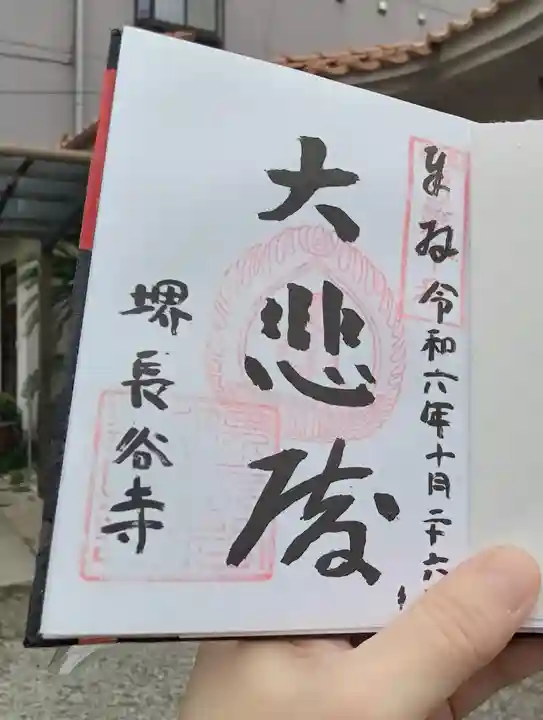 奉拝 令和六年十月二十六
大悲殿
堺長谷寺